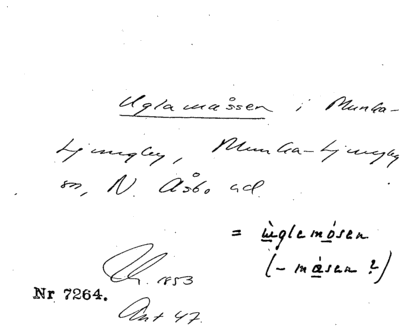 Uglamåssen i Munka-
Ljungby, Munka-Ljungby
sn, N. Åsbo hd.
= ùglemósen
(- måsen?)
1853
Nr 7264.
Ant 47.